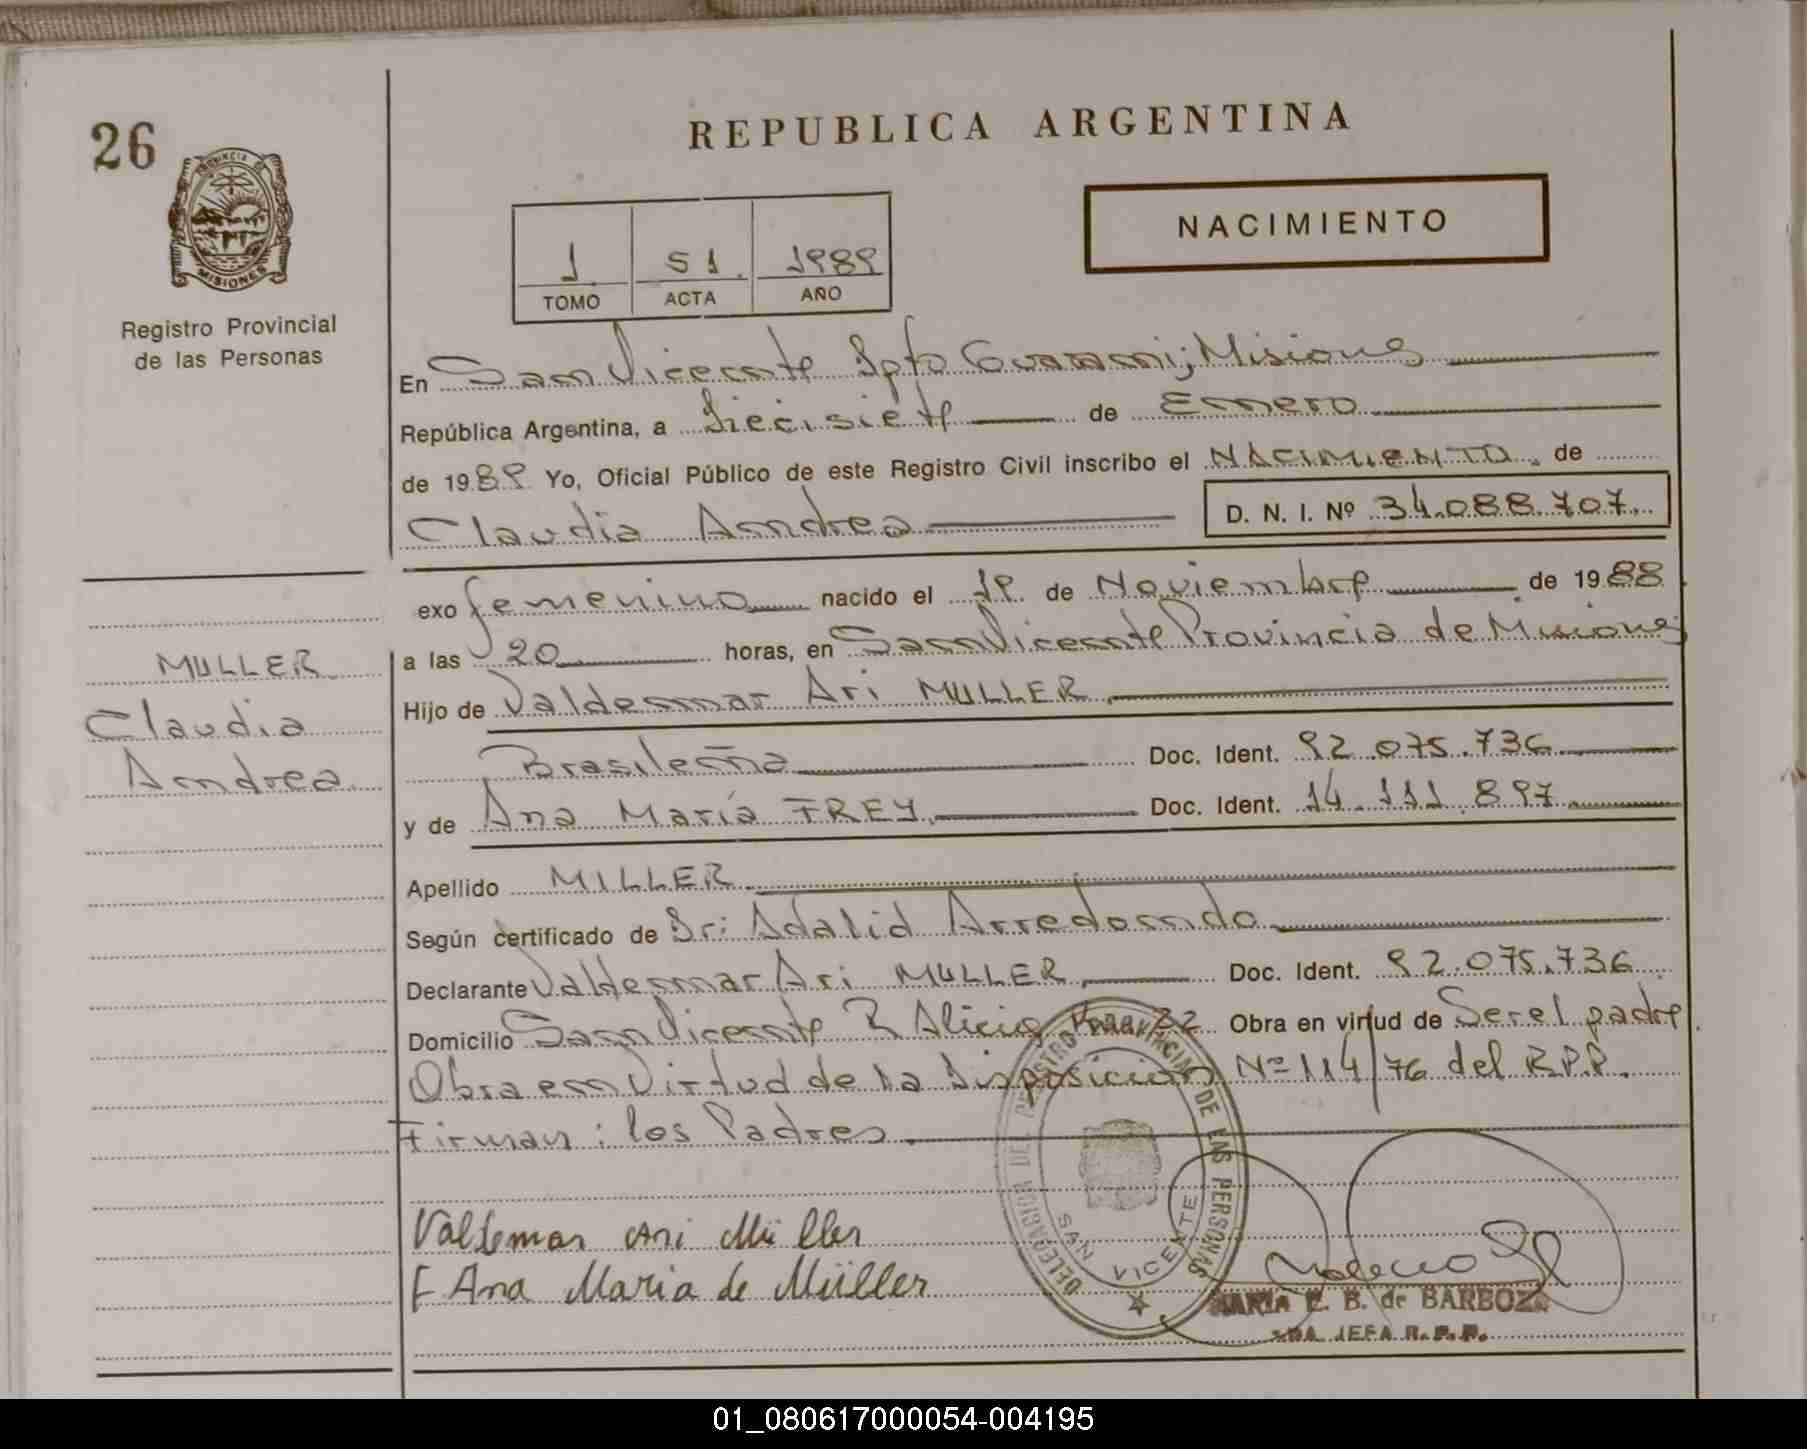 26
PROVINCIA DE
MISIONES
Registro Provincial
de las Personas
REPUBLICA ARGENTINA
NACIMIENTO
1 51. 1989
TOMO ACTA AÑO
En San Vicente Dpto Guarani; Misiones
República Argentina, a Diecisiete de Enero
de 1989 Yo, Oficial Público de este Registro Civil inscribo el NACIMIENTO. de
Claudia Andrea D. N. I. Nº 34.088.707.
exo femenino nacido el 19. de Noviembre de 1988
a las 20 horas, en San Vicente Provincia de Misiones
Hijo de Valdemar Ari MULLER
Brasileña Doc. Ident. 92.075.736
y de Ana María FREY Doc. Ident. 14.111.897
Apellido MILLER
Según certificado de Dr: Adalid Arredondo
Declarante Valdemar Ari MULLER Doc. Ident. 92.075.736
Domicilio San Vicente B Alicia 22 Obra en virtud de Ser el padre.
Obra en Virtud de la Disposición Nº 114/76 del R.P.P.
Firman: los Padres.
MULLER
Claudia
Andrea
Valdemar Ari Müller
Ana Maria de Müller
DELEGACION DE REGISTRO PROVINCIAL DE LAS PERSONAS
SAN VICENTE
MARIA E. B. de BARBOZA
2DA. JEFA R.P.P.
01_080617000054-004195